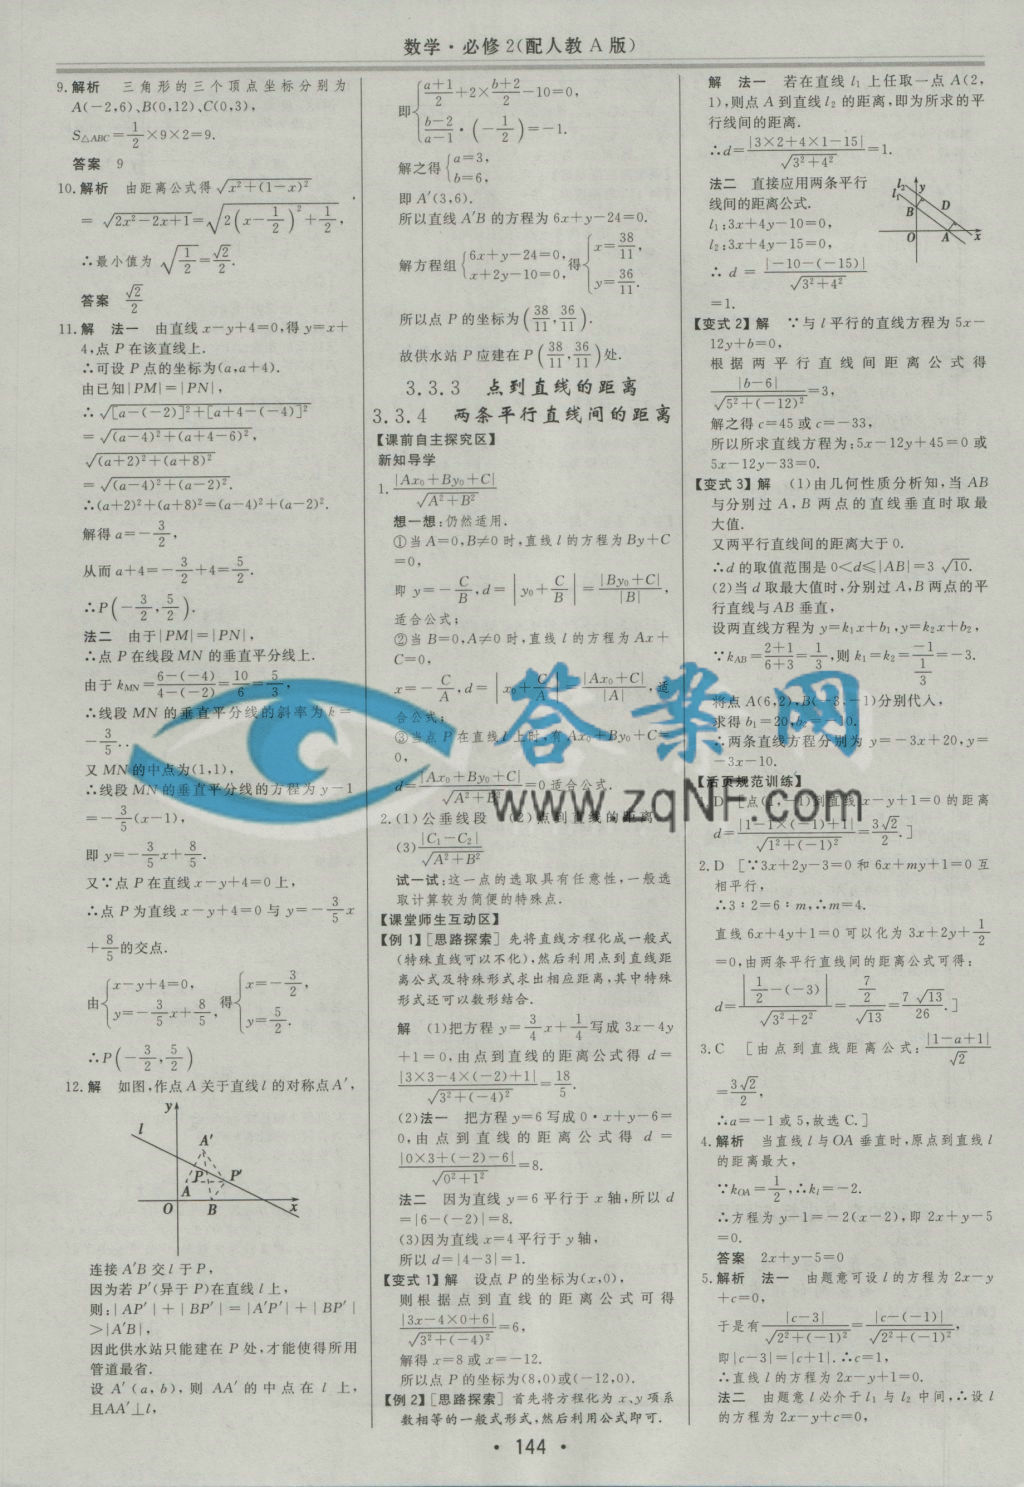 数学·必修2(配人教A版)
9.解析 三角形的三个顶点坐标分别为
A(-2,6)、B(0,12)、C(0,3),
S△ABC=1/2×9×2=9.
答案 9
10.解析 由距离公式得√(x²+(1-x)²)
=√(2x²-2x+1)=√(2(x-1/2)²+1/2),
∴最小值为√(1/2)=√2/2.
答案 √2/2
11.解 法一 由直线x-y+4=0,得y=x+
4,点P在该直线上.
∴可设P点的坐标为(a,a+4).
由已知|PM|=|PN|,
∴√([a-(-2)]²+[a+4-(-4)]²)
=√((a-4)²+(a+4-6)²),
√((a+2)²+(a+8)²)
=√((a-4)²+(a-2)²).
∴(a+2)²+(a+8)²=(a-4)²+(a-2)².
解得a=-3/2,
从而a+4=-3/2+4=5/2.
∴P(-3/2,5/2).
法二 由于|PM|=|PN|,
∴点P在线段MN的垂直平分线上.
由于kMN=6-(-4)/4-(-2)=10/6=5/3,
∴线段MN的垂直平分线的斜率为k=
-3/5.
又MN的中点为(1,1),
∴线段MN的垂直平分线的方程为y-1
=-3/5(x-1),
即y=-3/5x+8/5.
又∵点P在直线x-y+4=0上,
∴点P为直线x-y+4=0与y=-3/5x
+8/5的交点.
由{x-y+4=0, y=-3/5x+8/5, 得{x=-3/2, y=5/2.
∴P(-3/2,5/2)
12.解 如图,作点A关于直线l的对称点A′,
y
l
A′
P
P′
A
O B x
连接A′B交l于P,
因为若P′(异于P)在直线l上,
则:|AP′|+|BP′|=|A′P′|+|BP′|
>|A′B|,
因此供水站只能建在P处,才能使得所用
管道最省.
设A′(a,b),则AA′的中点在l上,
且AA′⊥l,
即{a+1/2+2×b+2/2-10=0, b-2/a-1·(-1/2)=-1.
解之得{a=3, b=6,
即A′(3,6).
所以直线A′B的方程为6x+y-24=0.
解方程组{6x+y-24=0, x+2y-10=0, 得{x=38/11, y=36/11.
所以点P的坐标为(38/11,36/11).
故供水站P应建在P(38/11,36/11)处.
3.3.3 点到直线的距离
3.3.4 两条平行直线间的距离
【课前自主探究区】
新知导学
1.|Ax₀+By₀+C|/√(A²+B²)
想一想:仍然适用.
①当A=0,B≠0时,直线l的方程为By+C
=0,
即y=-C/B,d=|y₀+C/B|=|By₀+C|/|B|,
适合公式;
②当B=0,A≠0时,直线l的方程为Ax+
C=0,
x=-C/A,d=|x₀+C/A|=|Ax₀+C|/|A|,适
合公式;
③当点P在直线l上时,有Ax₀+By₀+C=
0,
d=|Ax₀+By₀+C|/√(A²+B²)=0适合公式.
2.(1)公垂线段 (2)点到直线的距离
(3)|C₁-C₂|/√(A²+B²)
试一试:这一点的选取具有任意性,一般选
取计算较为简便的特殊点.
【课堂师生互动区】
【例1】[思路探索] 先将直线方程化成一般式
(特殊直线可以不化),然后利用点到直线距
离公式及特殊形式求出相应距离,其中特殊
形式还可以数形结合.
解 (1)把方程y=3/4x+1/4写成3x-4y
+1=0,由点到直线的距离公式得d=
|3×3-4×(-2)+1|/√(3²+(-4)²)=18/5.
(2)法一 把方程y=6写成0·x+y-6=
0,由点到直线的距离公式得d=
|0×3+(-2)-6|/√(0²+1²)=8.
法二 因为直线y=6平行于x轴,所以d
=|6-(-2)|=8.
(3)因为直线x=4平行于y轴,
所以d=|4-3|=1.
【变式1】解 设点P的坐标为(x,0),
则根据点到直线的距离公式可得
|3x-4×0+6|/√(3²+(-4)²)=6,
解得x=8或x=-12.
所以点P的坐标为(8,0)或(-12,0).
【例2】[思路探索] 首先将方程化为x、y项系
数相等的一般式形式,然后利用公式即可.
解 法一 若在直线l₁上任取一点A(2,
1),则点A到直线l₂的距离,即为所求的平
行线间的距离.
∴d=|3×2+4×1-15|/√(3²+4²)=1.
法二 直接应用两条平行
线间的距离公式.
l₁:3x+4y-10=0,
l₂:3x+4y-15=0,
∴d=|-10-(-15)|/√(3²+4²)
=1.
l₂ y
l₁
B D
O A x
【变式2】解 ∵与l平行的直线方程为5x-
12y+b=0,
根据两平行直线间距离公式得
|b-6|/√(5²+(-12)²)=3,
解之得c=45或c=-33,
所以所求直线方程为:5x-12y+45=0或
5x-12y-33=0.
【变式3】解 (1)由几何性质分析知,当AB
与分别过A,B两点的直线垂直时取最
大值.
又两平行直线间的距离大于0.
∴d的取值范围是0<d≤|AB|=3√10.
(2)当d取最大值时,分别过A,B两点的平
行直线与AB垂直,
设两直线方程为y=k₁x+b₁,y=k₂x+b₂,
∵kAB=2+1/6+3=1/3,则k₁=k₂=-1/(1/3)=-3.
将点A(6,2),B(-3,-1)分别代入,
求得b₁=20,b₂=-10.
∴两条直线方程分别为y=-3x+20,y=
-3x-10.
【活页规范训练】
D [点(1,-1)到直线x-y+1=0的距离
d=|1-1×(-1)+1|/√(1²+(-1)²)=3√2/2.]
2.D [∵3x+2y-3=0和6x+my+1=0互
相平行,
∴3:2=6:m,∴m=4.
直线6x+4y+1=0可以化为3x+2y+1/2
=0,由两条平行直线间的距离公式可得:
d=|1/2-(-3)|/√(3²+2²)=(7/2)/√13=7√13/26.]
3.C [由点到直线距离公式:|1-a+1|/√2
=3√2/2,
∴a=-1或5,故选C.]
4.解析 当直线l与OA垂直时,原点到直线l
的距离最大,
∵kOA=1/2,∴kl=-2.
∴方程为y-1=-2(x-2),即2x+y-5
=0.
答案 2x+y-5=0
5.解析 法一 由题意可设l的方程为2x-y
+c=0,
于是有|c-3|/√(2²+(-1)²)=|c-(-1)|/√(2²+(-1)²),
即|c-3|=|c+1|.∴c=1,
∴直线l的方程为2x-y+1=0.
法二 由题意l必介于l₁与l₂中间,∴设l
的方程为2x-y+c=0,
答案网
www.zqNF.com
·144·